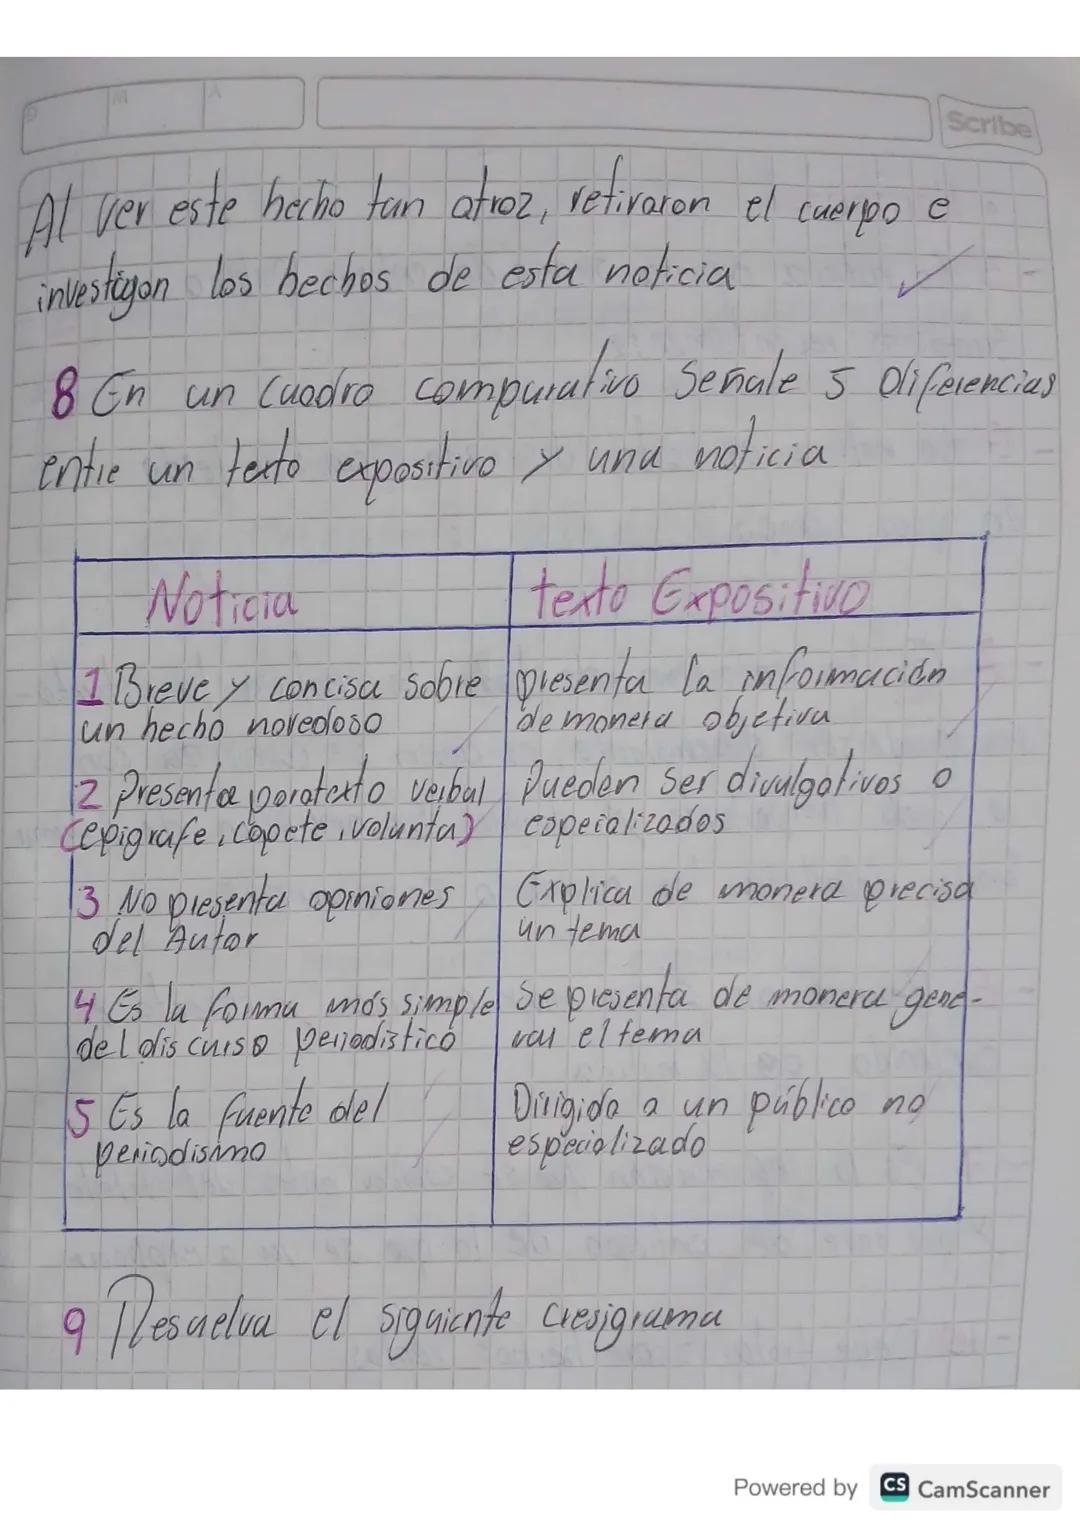 D M A
Scribe
Al ver este hecho tan atroz, retiraron el cuerpo e
investigan los hechos de esta noticia
8 En un cuadro comparativo Señale 5 diferencias
entre un texto expositivo y una noticia
Noticia
texto Expositivo
1 Breve y concisa sobre
un hecho novedoso
presenta la información
de manera objetiva
2 Presenta paratexto verbal
(epigrafe, copete, volunta)
Pueden ser divulgativos o
especializados
3 No presenta opiniones
del Autor
Explica de manera precisa
un tema
4 Es la forma más simple
del discurso periodistico
Se presenta de manera gene-
ral el tema
5 Es la fuente del
periodismo
Dirigida a un público no
especializado
9 Resuelva el siguiente cresigrama
Powered by CS CamScanner